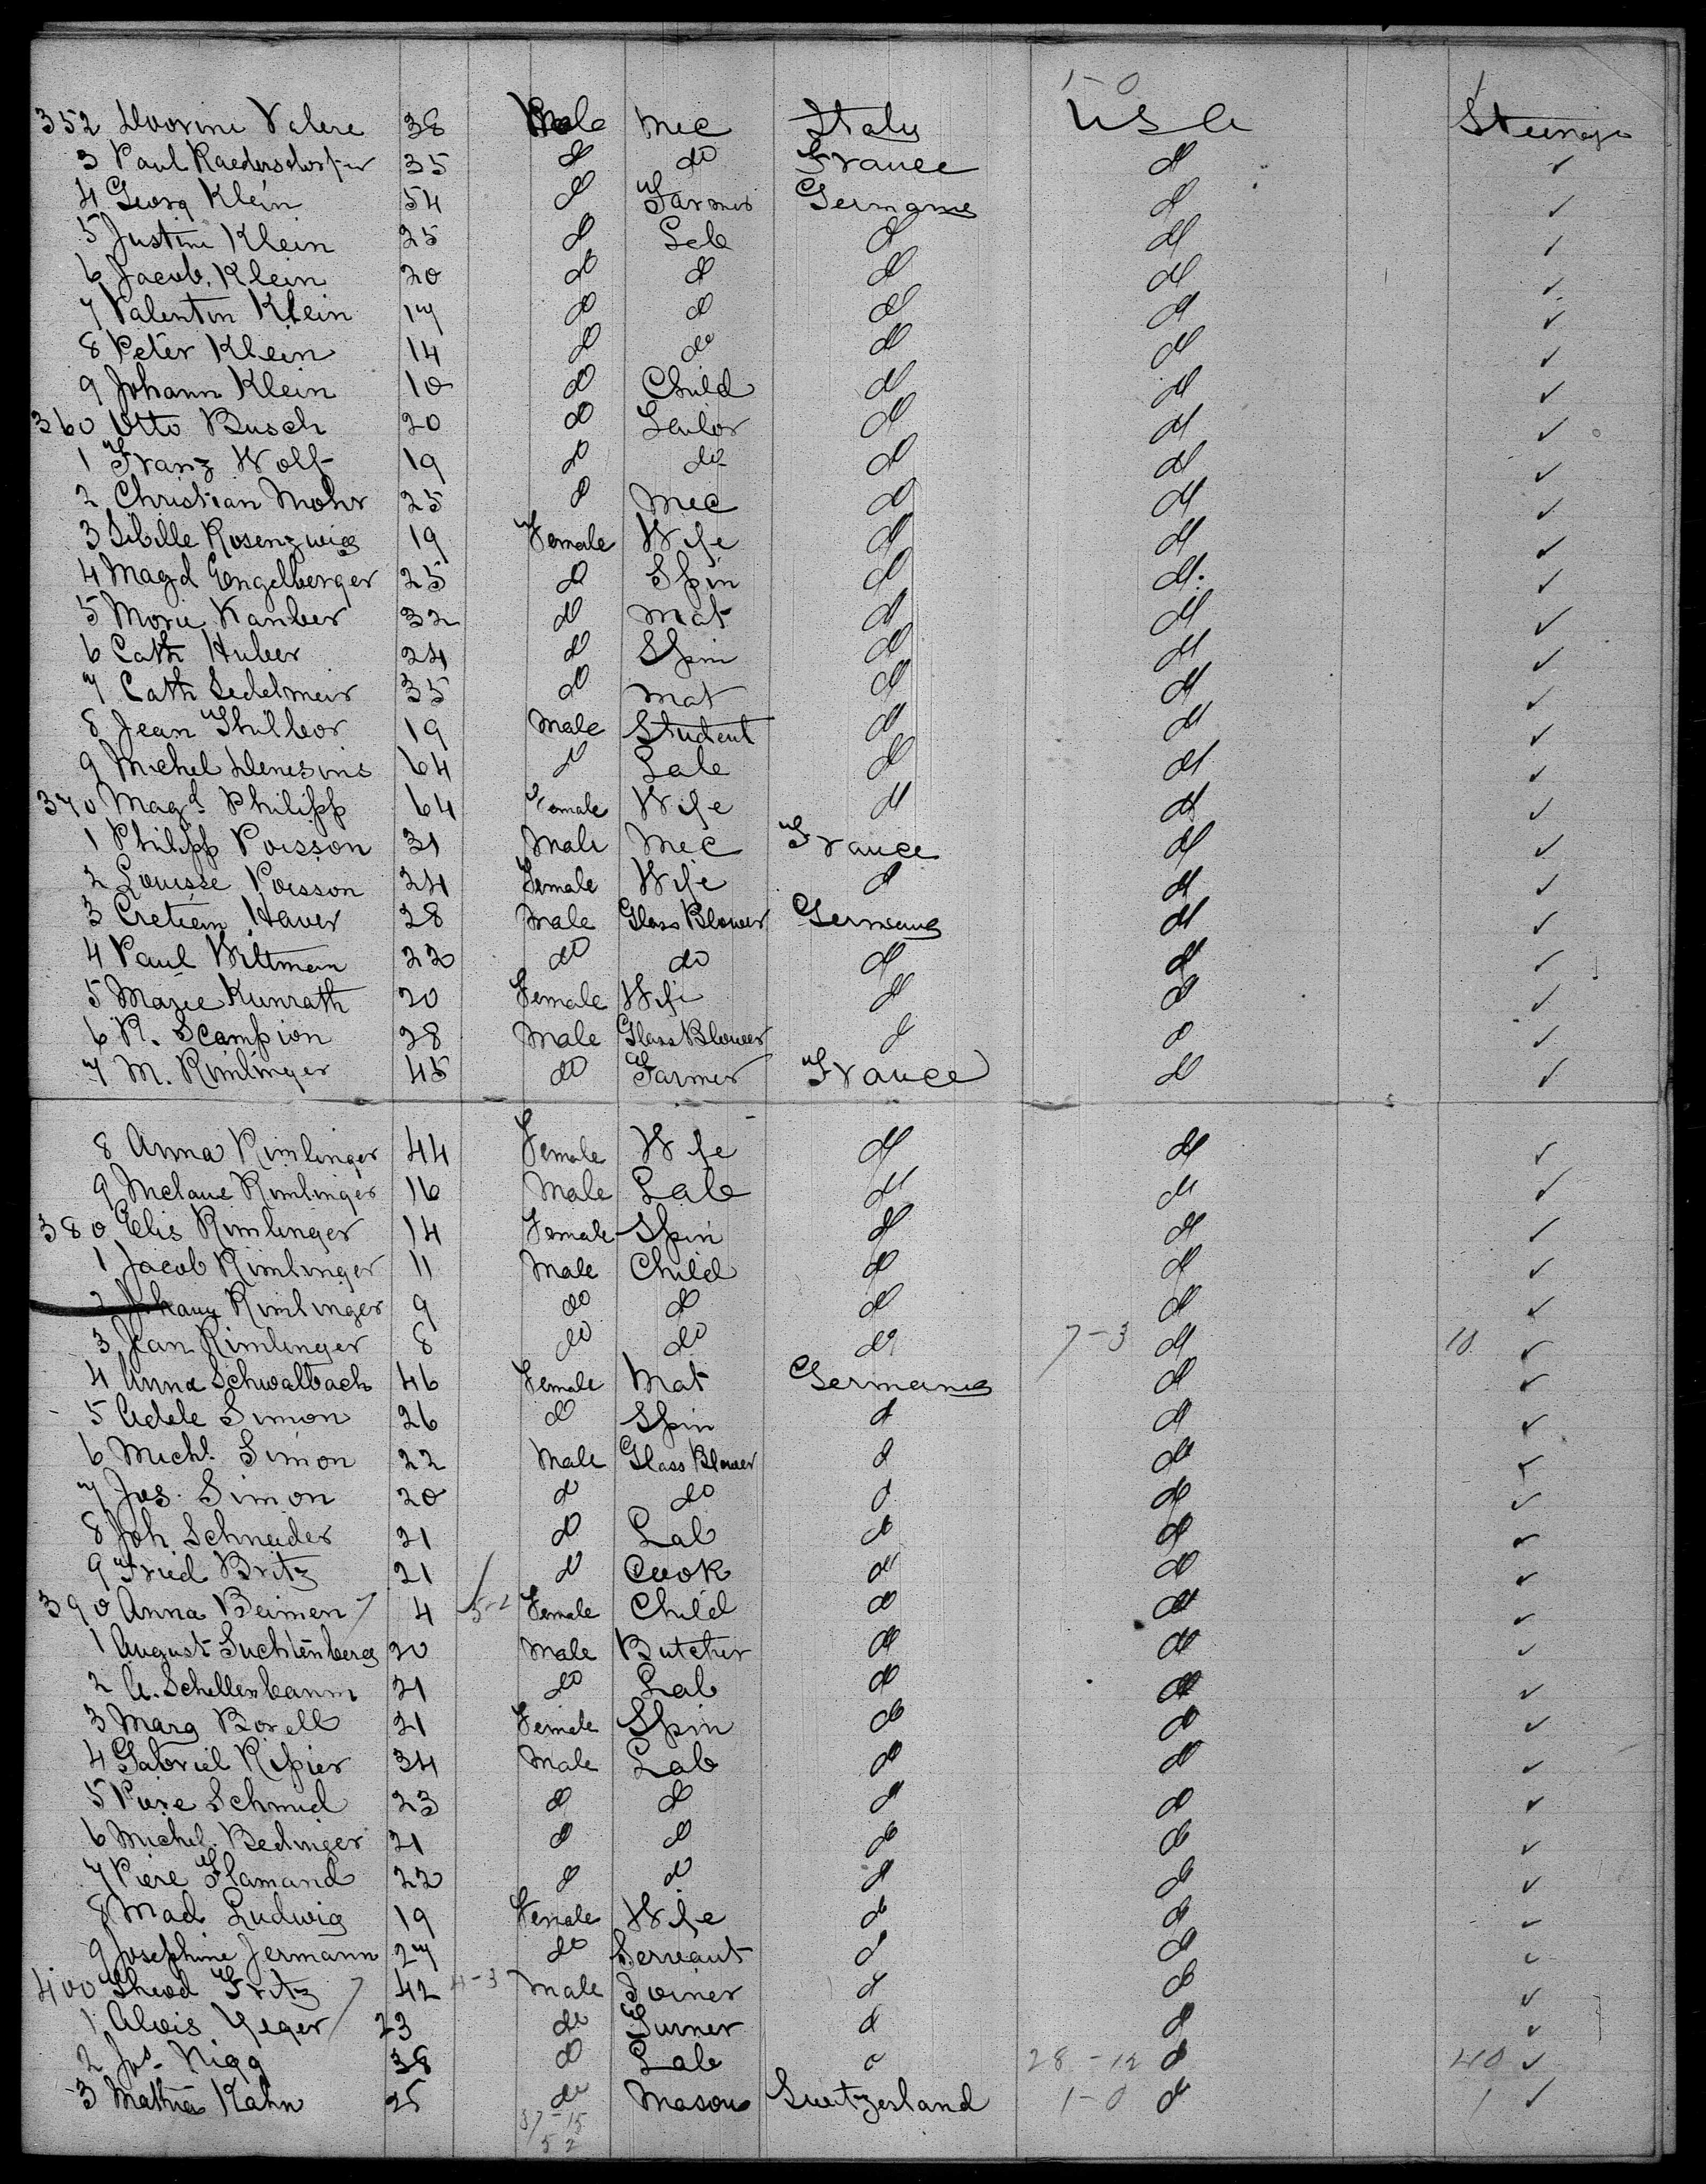 1-0
352 Doorini Valere 38 Male Mec Italy USA Steerage
3 Paul Raedersdorfer 35 do do France do ✓
4 Georg Klein 54 do Farmer Germany do ✓
5 Justin Klein 25 do Lab do do ✓
6 Jacob Klein 20 do do do do ✓
7 Valentin Klein 17 do do do do ✓
8 Peter Klein 14 do do do do ✓
9 Johann Klein 10 do Child do do ✓
360 Otto Busch 20 do Sailor do do ✓
1 Franz Wolf 19 do do do do ✓
2 Christian Mohr 25 do Mec do do ✓
3 Sibille Rosenzwieg 19 Female Wife do do ✓
4 Magd Engelberger 25 do Spin do do ✓
5 Marie Kanber 32 do Mat do do ✓
6 Cath Huber 24 do Spin do do ✓
7 Cath Sedelmeir 35 do Mat do do ✓
8 Jean Thillbor 19 Male Student do do ✓
9 Michel 64 do Lab do do ✓
370 Magd Philipp 64 Female Wife do do ✓
1 Philipp Poisson 31 Male Mec France do ✓
2 Louisse Poisson 24 Female Wife do do ✓
3 Cretien Haver 28 Male Glass Blower Germany do ✓
4 Paul Wittman 22 do do do do ✓
5 Marie Kunrath 20 Female Wife do do ✓
6 N. Scampion 28 Male Glass Blower do do ✓
7 M. Rimlinger 45 do Farmer France do ✓
8 Anna Rimlinger 44 Female Wife do do ✓
9 Melane Rimlinger 16 Male Lab do do ✓
380 Elis Rimlinger 14 Female Spin do do ✓
1 Jacob Rimlinger 11 Male Child do do ✓
2 Johany Rimlinger 9 do do do do ✓
3 Jean Rimlinger 8 do do do 7-3 do 10 ✓
4 Anna Schwalbach 46 Female Mat Germany do ✓
5 Adele Simon 26 do Spin do do ✓
6 Michl. Simon 22 Male Glass Blower do do ✓
7 Jos. Simon 20 do do do do ✓
8 Joh Schneider 21 do Lab do do ✓
9 Fried Britz 21 do Cook do do ✓
390 Anna Beimen 4 5-2 Female Child do do ✓
1 August Suchtenberg 20 Male Butcher do do ✓
2 A. Schellenbaum 21 do Lab do do ✓
3 Marg Borell 21 Female Spin do do ✓
4 Gabriel Ripier 34 Male Lab do do ✓
5 Piere Schmid 23 do do do do ✓
6 Michel Bedinger 21 do do do do ✓
7 Piere Flamand 22 do do do do ✓
8 Mad Ludwig 19 Female Wife do do ✓
9 Josephine Jermann 27 do Servant do do ✓
400 Theod Fritz 42 4-3 Male Joiner do do ✓
1 Alois Yeger 23 do Turner do do ✓
2 Jos. Nigg 38 do Lab do 28-12 do 40 ✓
3 Mathias Kahn 25 do Mason Switzerland 1-0 do 1 ✓
37-15
5 2